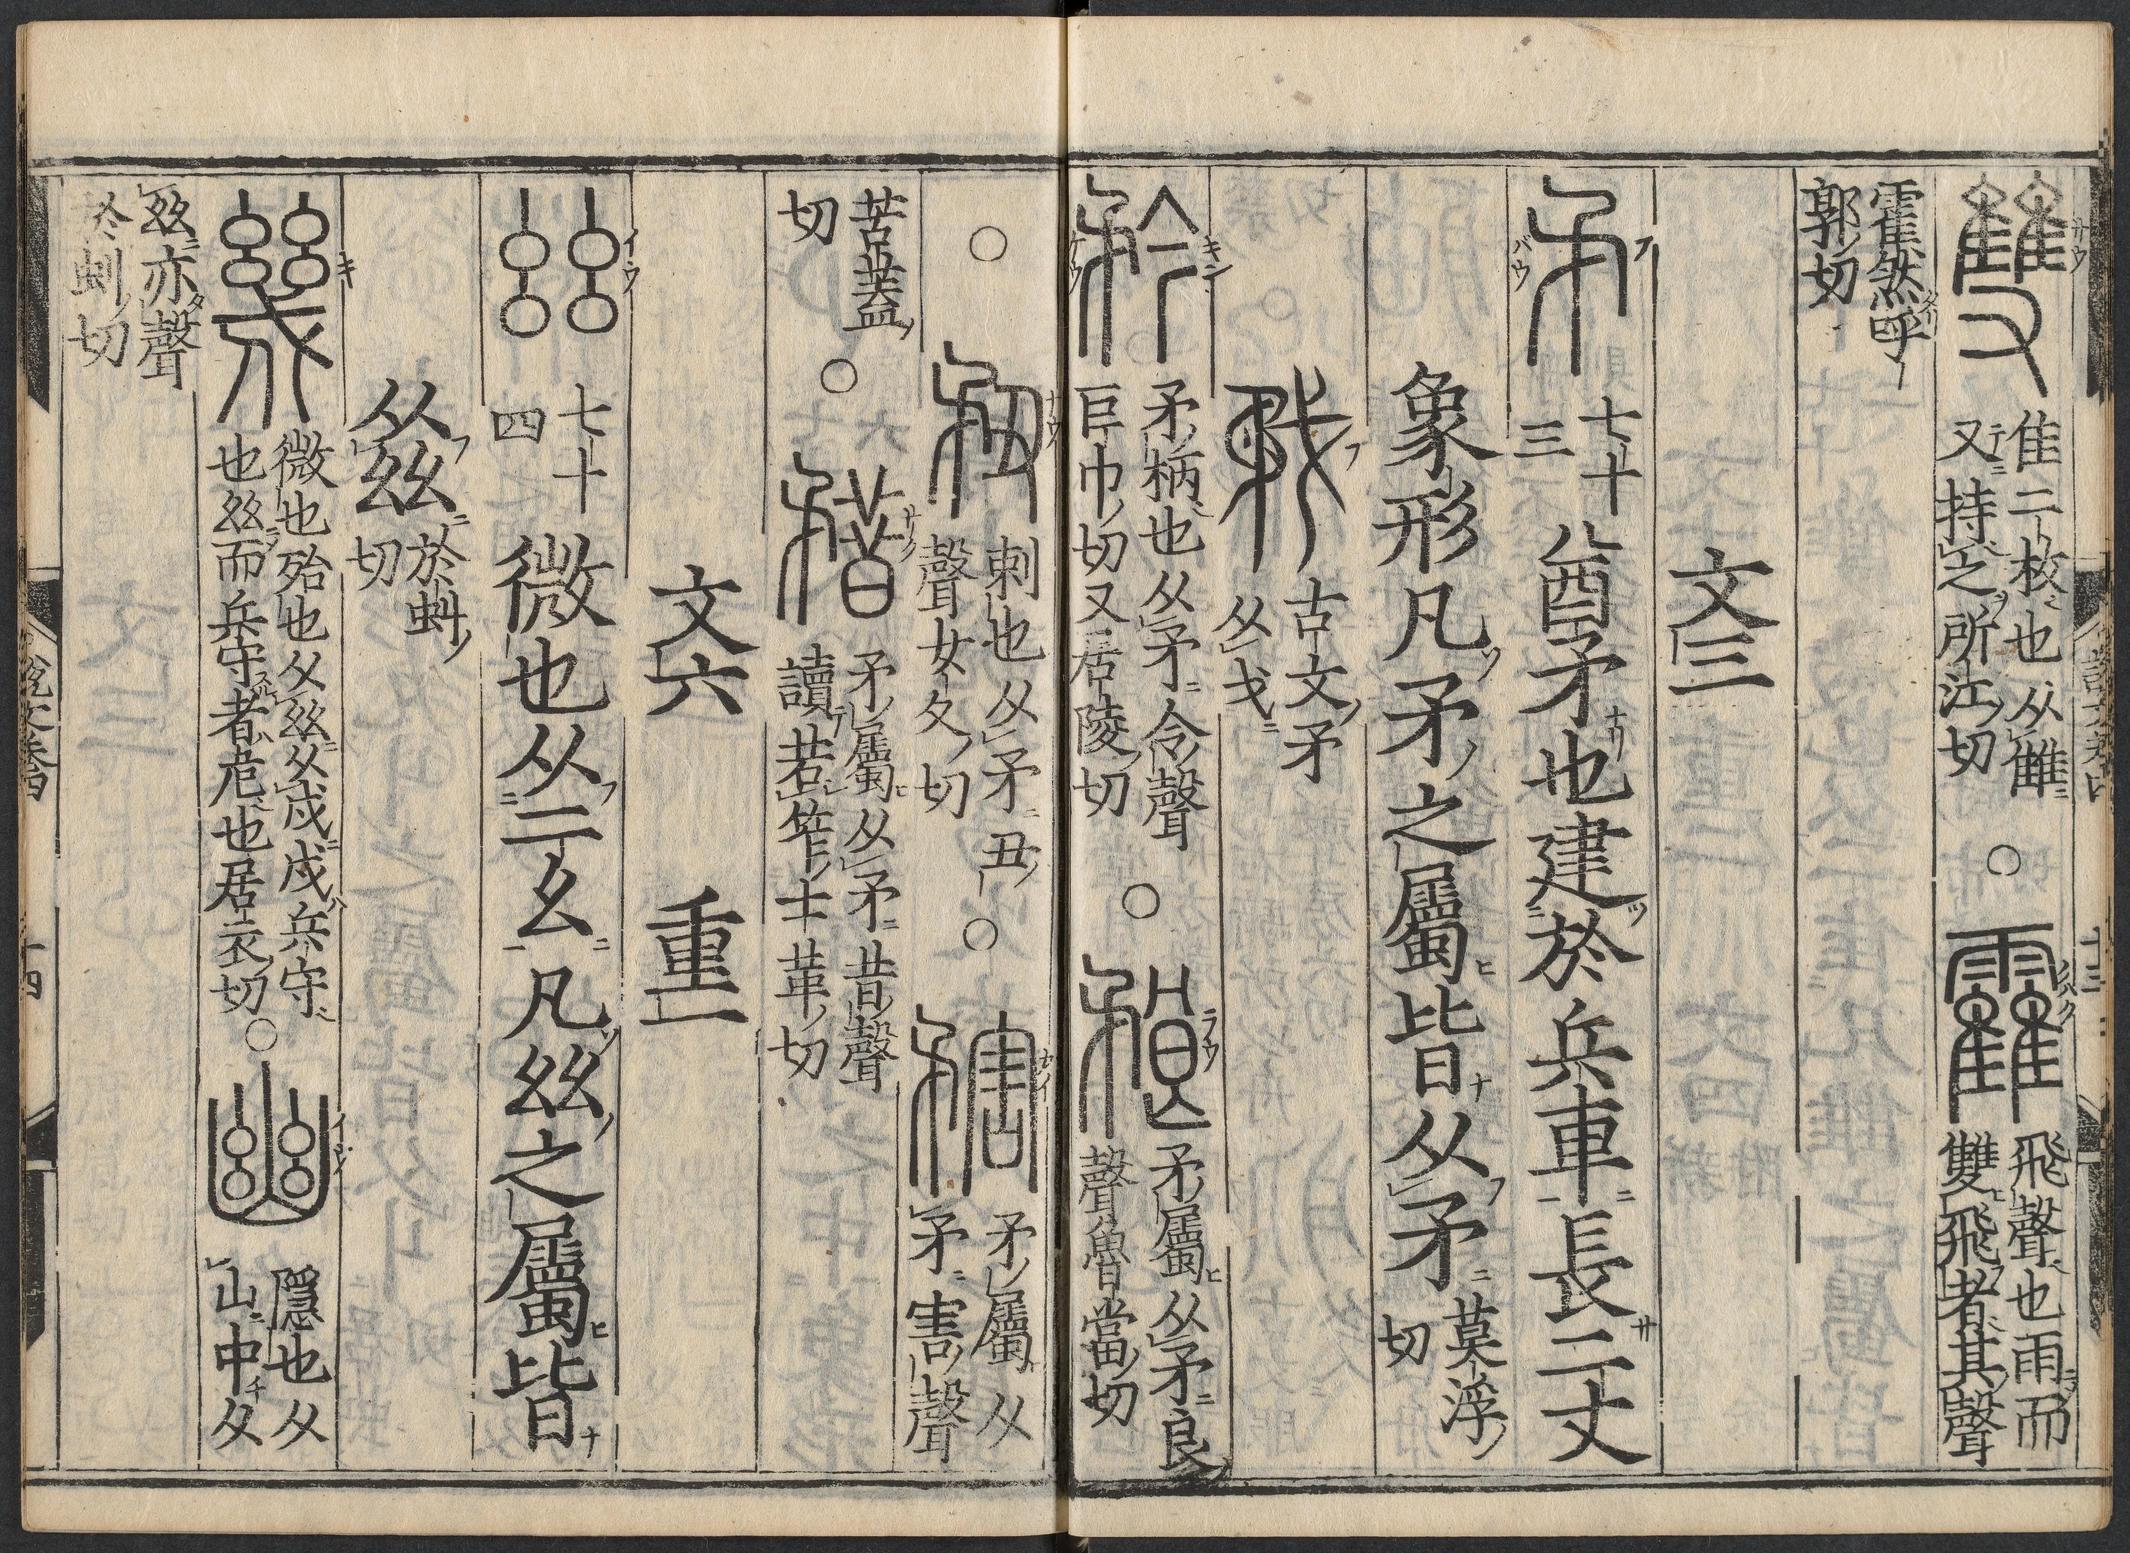 雙
隹二枚也从雔
又持之所江切
○
靃
飛聲也雨而
雙飛者其聲
霍然呼
郭切
文三
矛
七十
三
酋矛也建於兵車長二丈
象形凡矛之屬皆从矛
莫浮
切
古文矛
从戈
矜
矛柄也从矛令聲
巨巾切又居陵切
○
矛屬从矛良
聲魯當切
○
刺也从矛丑
聲女久切
○
矛屬从
矛害聲
苦蓋
切
○
矠
矛屬从矛昔聲
讀若笮士革切
文六
重一
𢆶
七十
四
微也从二幺凡𢆶之屬皆
从𢆶
於虯
切
幾
微也殆也从𢆶从戍戍兵守
也𢆶而兵守者危也居衣切
○
幽
隱也从
山中从
𢆶亦聲
於虯切
說文卷四
十四